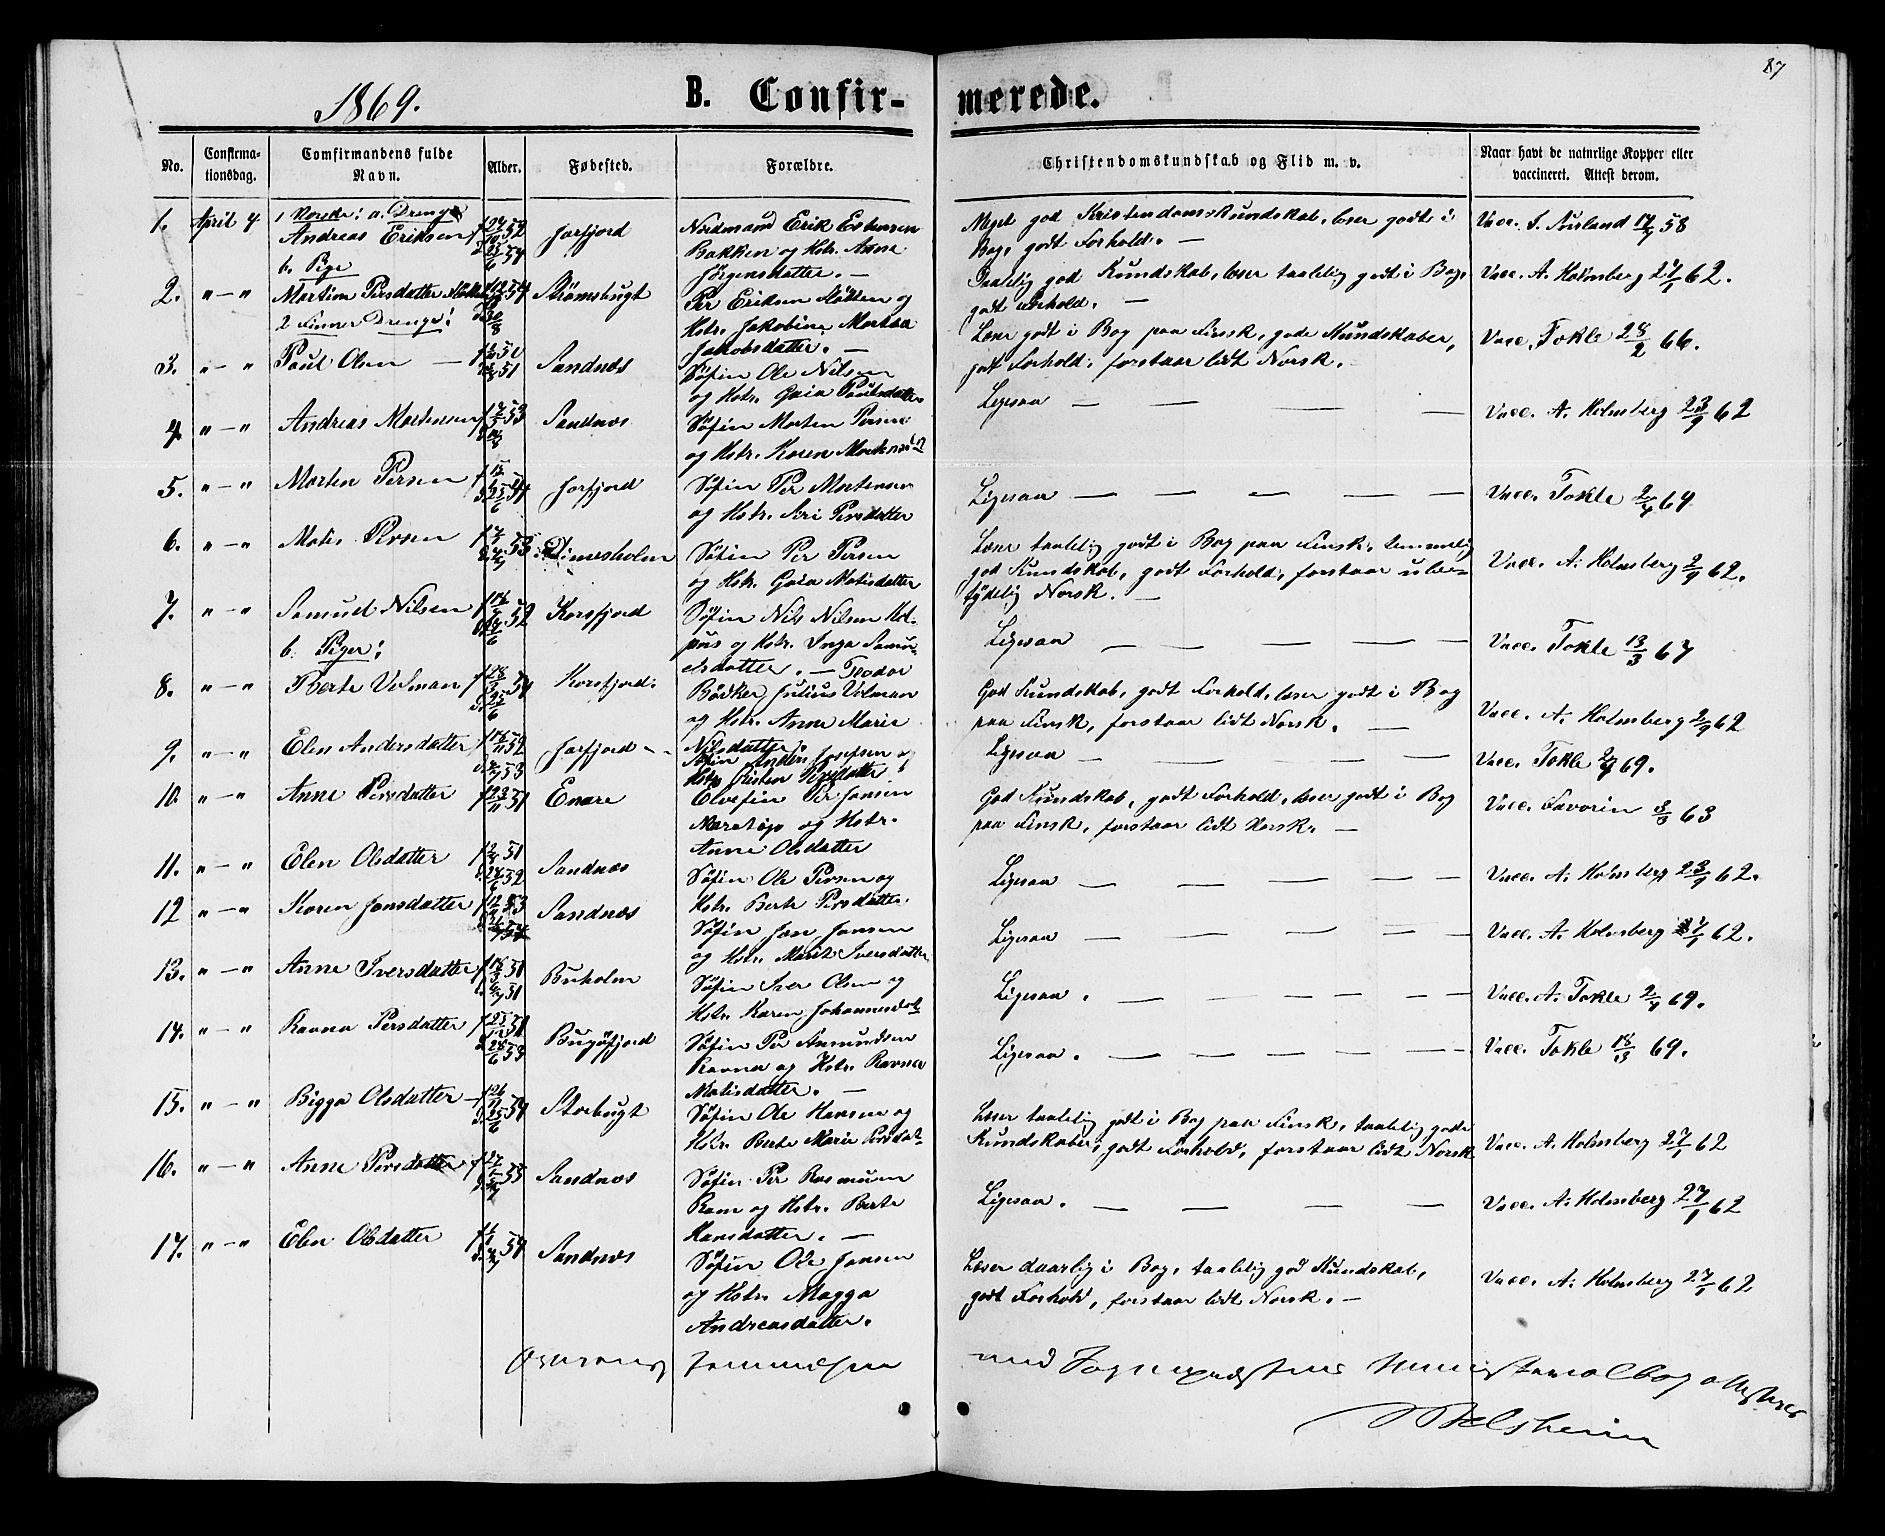 87
1869.
B. Confir-
merede.
No.
Confirma-
tionsdag.
Comfirmandens fulde
Navn.
Alder.
Fødested.
Forældre.
Christendomskundskab og Flid m. v.
Naar havt de naturlige Kopper eller
vaccineret. Attest derom.
1 Norske: a. Drenge
1. April 4 Andreas Eriksen Jarfjord
Nordmand Erik Estensen
Bakken og Hstr. Anne
Jørgensdatter. —
Meget god Kristendomskundskab, læser godt i
Bog, godt Forhold. —
Vacc. S. Ausland 58
b. Pige
2. " — " Martine Persdatter Strømsbugt
Per Eriksen og
Hstr. Jakobine Martha
Jakobsdatter. —
Taalelig god Kundskab, læser taalelig godt i Bog,
godt Forhold. —
Vacc. A. Holmberg 27/1 62.
2 Finner Drenge:
3. " — " Paul Olsen — Sandnæs
Søfin Ole Nilsen
og Hstr. Gaia Paulsdatter
Læser godt i Bog paa Finsk, gode Kundskaber,
godt Forhold, forstaar lidt Norsk.
Vacc. Tokle 28/2 66.
4 " — " Andreas Mortensen 53 Sandnæs
Søfin Morten Persen
og Hstr. Karen
Ligesaa — — — —
Vacc. A. Holmberg 23/9 62
5. " — " Morten Persen Jarfjord
Søfin Per Mortensen
og Hstr. Siri Persdatter
Ligesaa — — — — —
Vacc. Tokle
6. " — " Matis Persen 53
Søfin Per Persen
og Hstr. Gaia Matisdatter
Læser taalelig godt i Bog paa Finsk, temmelig
god Kundskab, godt Forhold, forstaar ube-
tydelig Norsk. —
Vacc. A. Holmberg 2/9 62.
7. " — " Samuel Nilsen 52 Korsfjord
Søfin Nils Nilsen
og Hstr. Inga Samu-
elsdatter. —
Ligesaa — — — —
Vacc. Tokle 13/3 67
b. Piger:
8. " — " Berte Volman 54 Korsfjord.
Bødker Julius Volman
og Hstr. Anne Marie
Nilsdatter.
God Kundskab, godt Forhold, læser godt i Bog
paa Finsk, forstaar lidt Norsk. —
Vacc. A. Holmberg 2/9 62
9. " — " Elen Andersdatter 52 53 Jarfjord
Søfin Anders og
Hstr. Kirsten Persdatter
Ligesaa — — — —
Vacc. Tokle 69.
10. " — " Anne Persdatter 51 Enare
Elvefin Per Jansen
og Hstr.
Anne Olsdatter
God Kundskab, godt Forhold, læser godt i Bog
paa Finsk, forstaar lidt Norsk. —
Vacc. Favorin 63
11. " — " Elen Olsdatter 51 52 Sandnæs
Søfin Ole Persen og
Hstr. Berte Persdatter.
Ligesaa — — — —
Vacc. A. Holmberg 23/9 62.
12 " — " Karen Jansdatter 53 Sandnæs
Søfin Jan Jansen
og Hstr. Marit Iversdatter
Ligesaa — — — —
Vacc. A. Holmberg 62.
13. " — " Anne Iversdatter Buholm
Søfin Iver Olsen og
Hstr. Karen
Ligesaa. — — — — —
Vacc. A. Tokle 69.
14. " — " Ravna Persdatter 53 Bugøfjord
Søfin Per Amundsen
Ravna og Hstr. Ravna
Matisdatter. —
Ligesaa. — — — — —
Vacc. Tokle 18/3 69.
15. " — " Bigga Olsdatter 54 Storbugt
Søfin Ole Hansen og
Hstr. Berte Marie
Læser taalelig godt i Bog paa Finsk, taalelig gode
Kundskaber, godt Forhold, forstaar lidt Norsk
Vacc. A. Holmberg 27/1 62
16. " — " Anne Persdatter Sandnæs
Søfin Per
og Hstr. Berte
Hansdatter. —
Ligesaa. — — — —
Vacc. A. Holmberg 27/1 62
17. " — " Elen Olsdatter 54 Sandnæs
Søfin Ole Jansen
og Hstr. Magga
Andreasdatter.
Læser daarlig i Bog, taalelig god Kundskab,
godt Forhold, forstaar lidt Norsk. —
Vacc. A. Holmberg 27/1 62
med Sognepræstens Ministerialbog attesteres